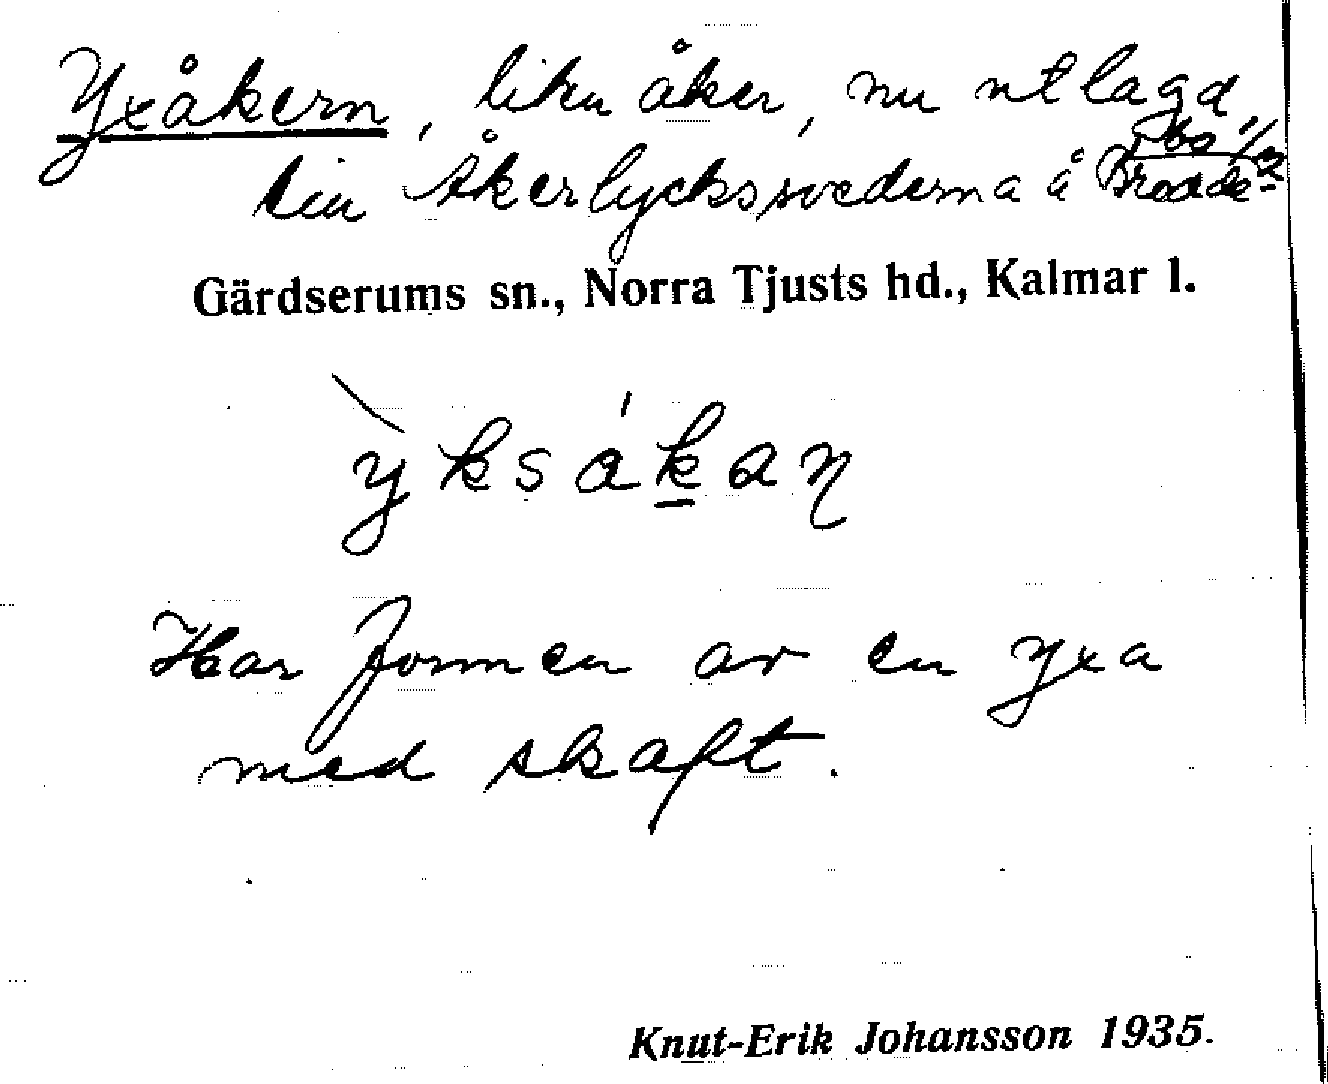 Yxåkern, liten åker, nu utlagd
till Åkerlyckssvederna å Brodde-
bo 1/2
Gärdserums sn., Norra Tjusts hd., Kalmar l.
ỳksákan
Har formen av en yxa
med skaft.
Knut-Erik Johansson 1935.